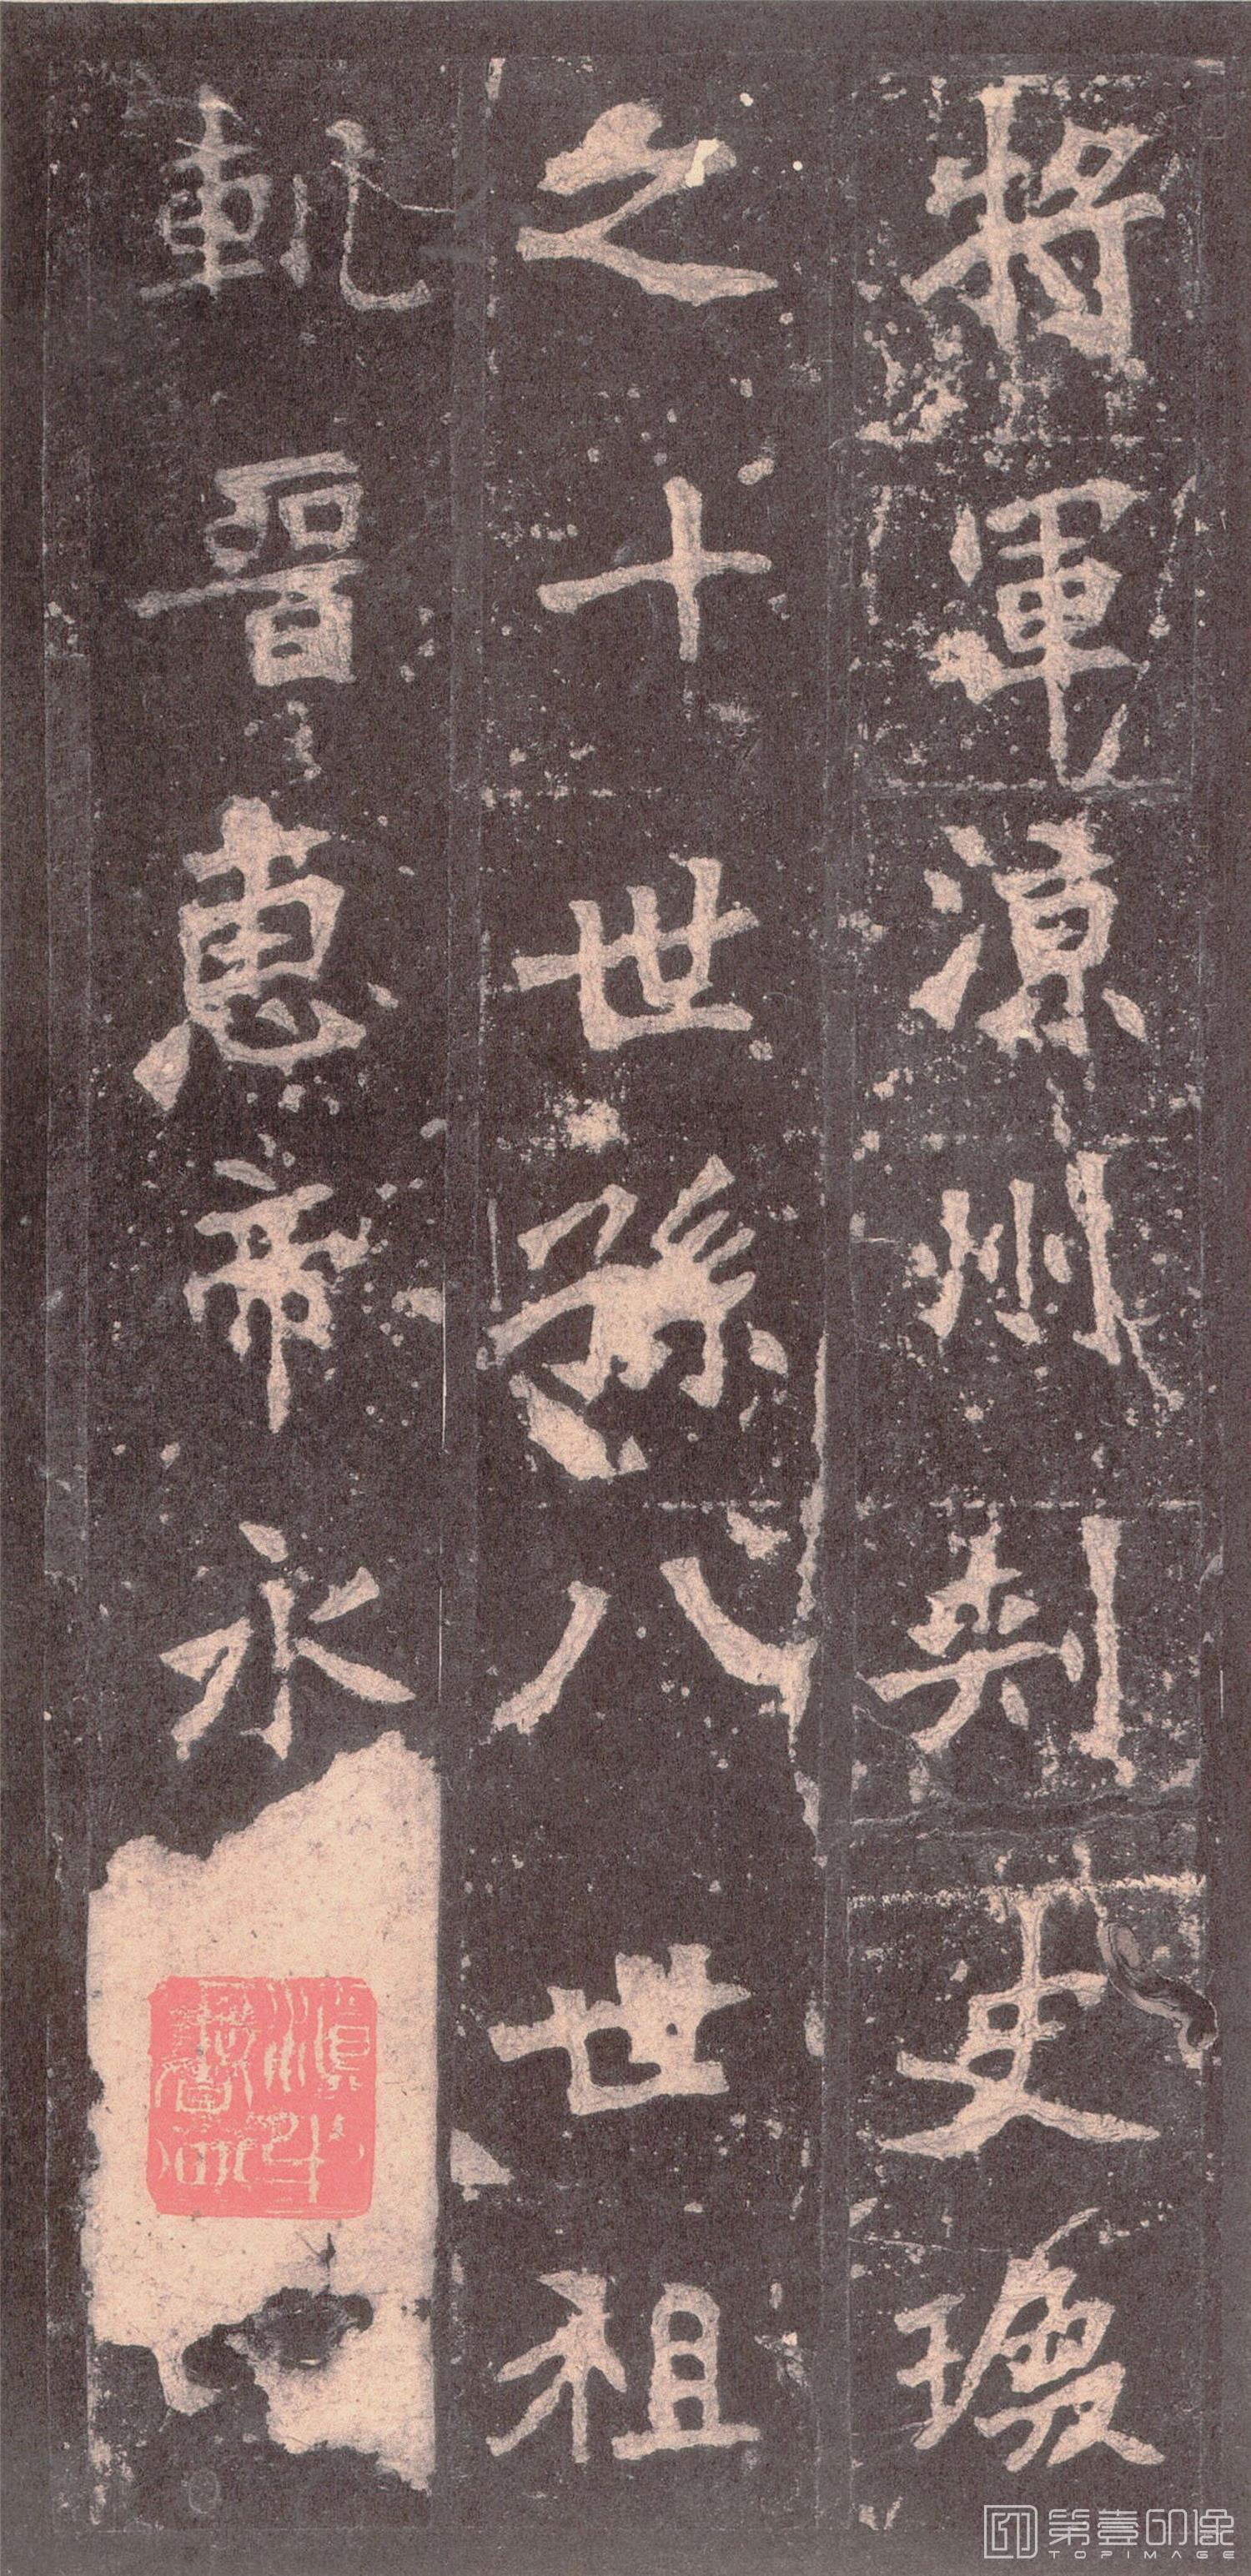 將軍涼州刾史瓊
之十世孫八世祖
軌晉惠帝永
第壹印像
TOPIMAGE